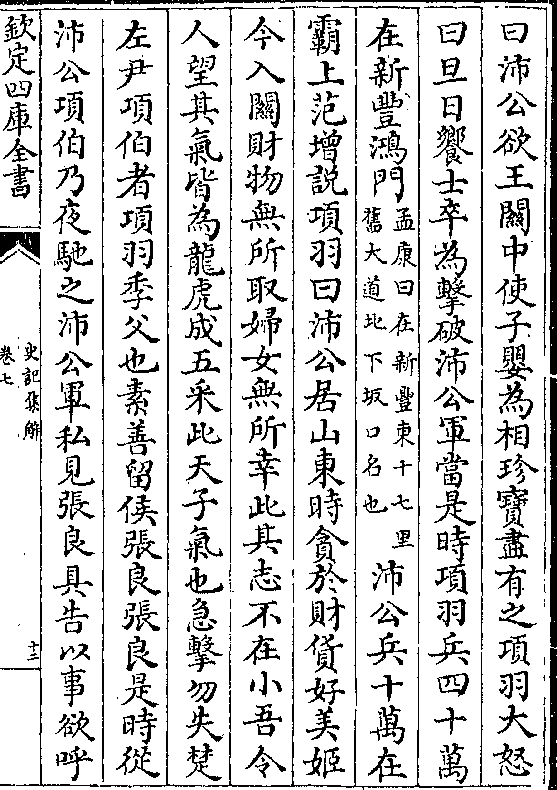 曰沛公欲王關中使子嬰為相珍寶盡有之項羽大怒
曰旦日饗士卒為擊破沛公軍當是時項羽兵四十萬
在新豐鴻門
孟康曰在新豐東十七里
舊大道北下坂口名也
沛公兵十萬在
霸上范增説項羽曰沛公居山東時貪於財貨好美姬
今入關財物無所取婦女無所幸此其志不在小吾令
人望其氣皆為龍虎成五采此天子氣也急擊勿失楚
左尹項伯者項羽季父也素善留侯張良張良是時從
沛公項伯乃夜馳之沛公軍私見張良具告以事欲呼
欽定四庫全書
史記集解
卷七
十三